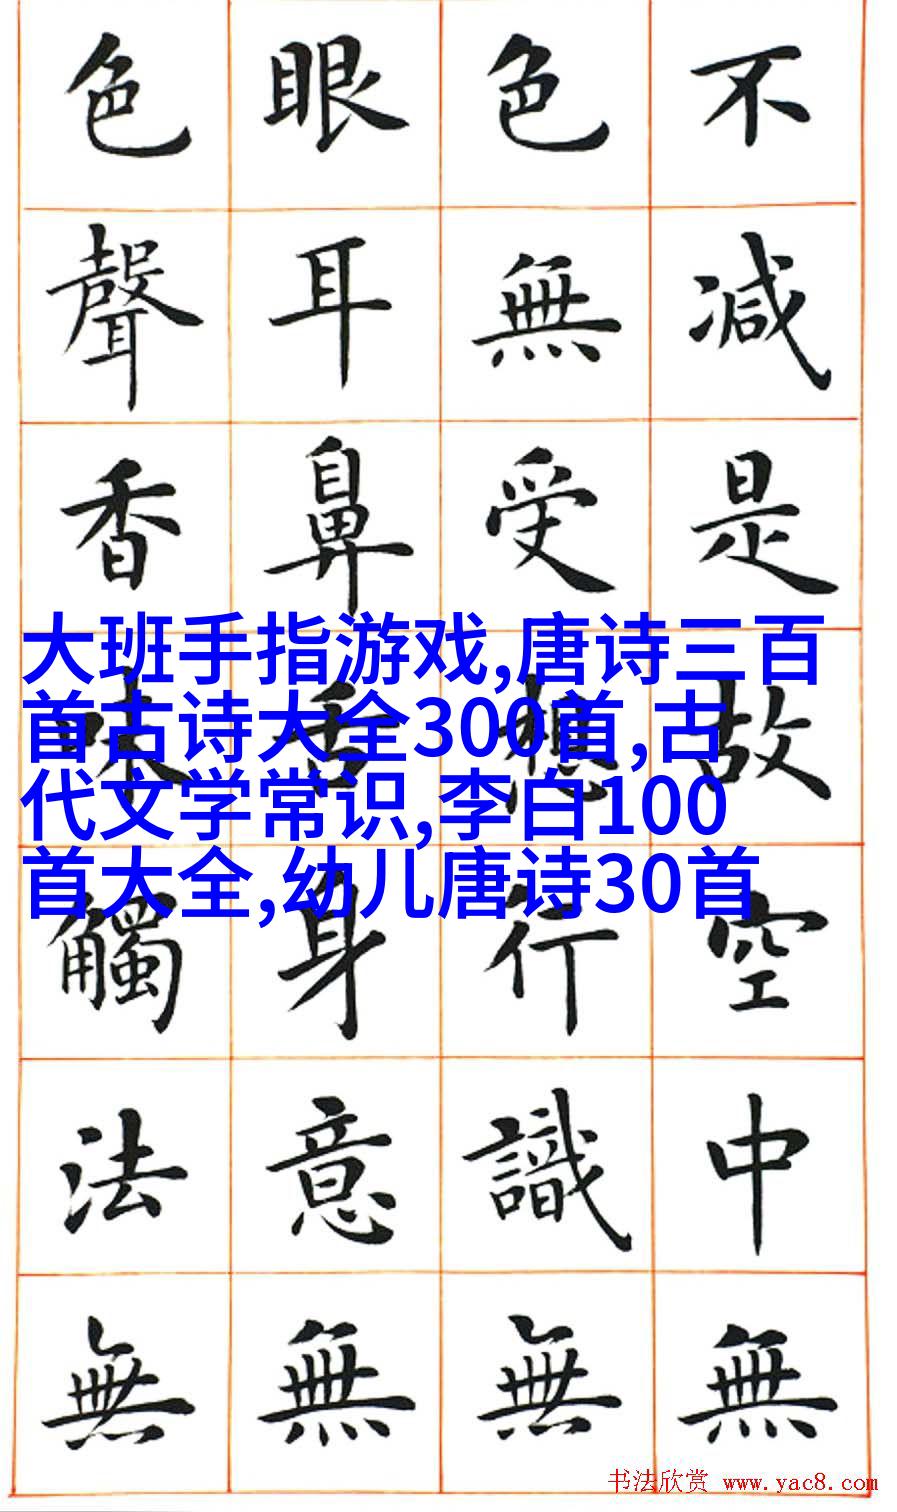 不減是故空中無
色無受想行識無
眼耳鼻舌身意無
色聲香味觸法無
大班手指游戏,唐诗三百
首古诗大全300首,古
代文学常识,李白100
首大全,幼儿唐诗30首
书法欣赏 www.yac8.com